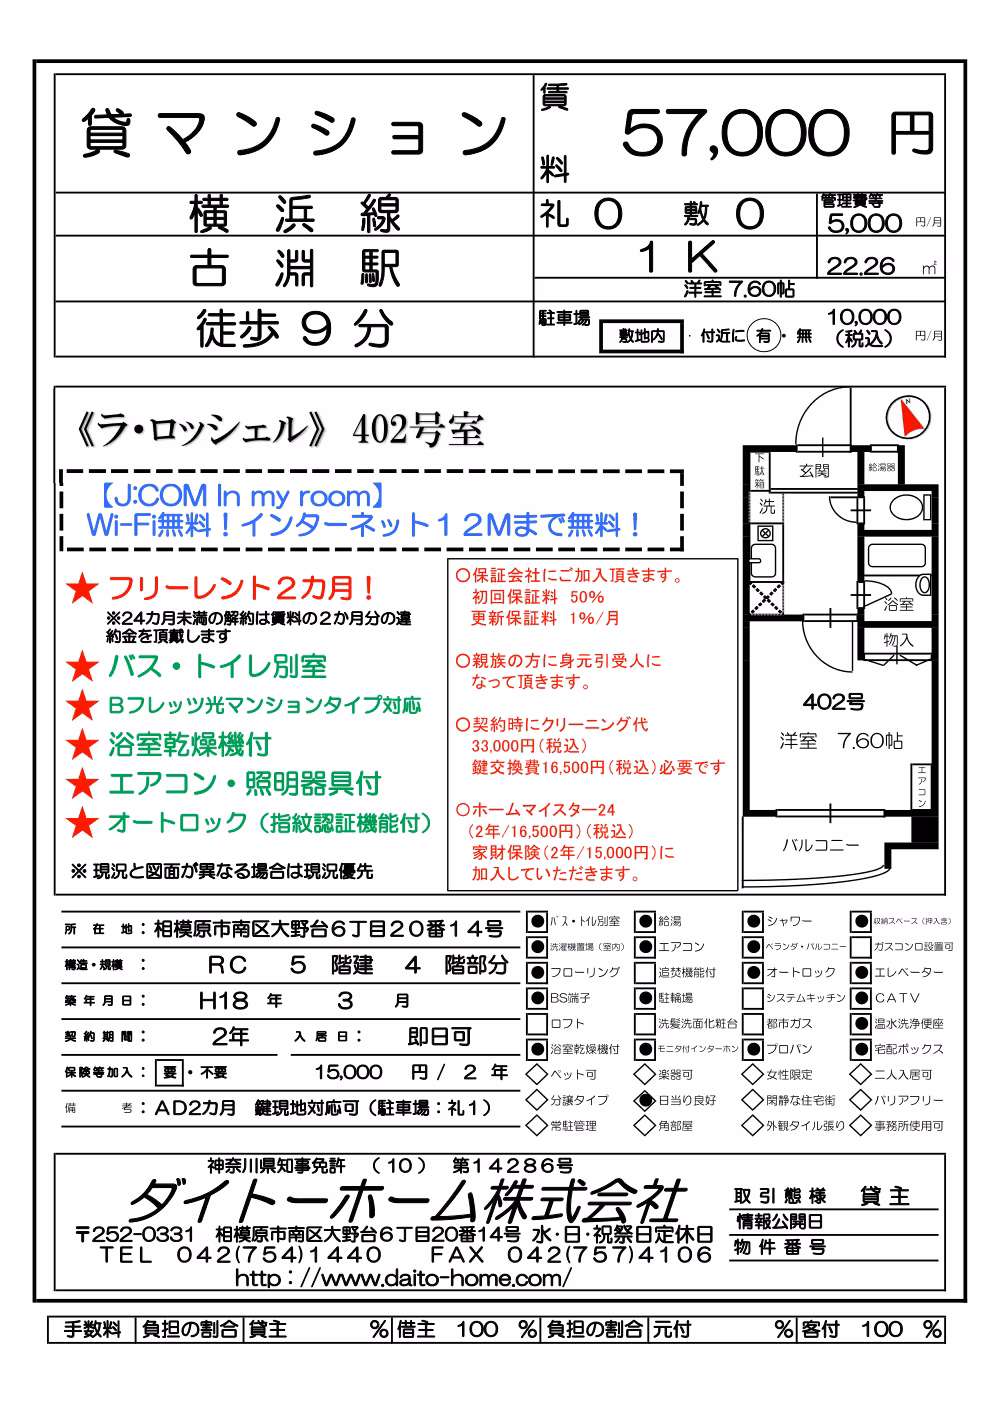 貸マンション
賃料 57,000 円
横浜線
礼 0 敷 0
管理費等
5,000 円/月
古淵駅
1K
22.26 ㎡
洋室 7.60帖
徒歩9分
駐車場 敷地内 ・ 付近に 有 ・ 無
10,000
(税込) 円/月
《ラ・ロッシェル》 402号室
【J:COM In my room】
Wi-Fi無料！インターネット12Mまで無料！
★ フリーレント2カ月！
※24カ月未満の解約は賃料の2か月分の違
約金を頂戴します
★ バス・トイレ別室
★ Bフレッツ光マンションタイプ対応
★ 浴室乾燥機付
★ エアコン・照明器具付
★ オートロック（指紋認証機能付）
※ 現況と図面が異なる場合は現況優先
○保証会社にご加入頂きます。
初回保証料 50％
更新保証料 1％/月
○親族の方に身元引受人に
なって頂きます。
○契約時にクリーニング代
33,000円（税込）
鍵交換費16,500円（税込）必要です
○ホームマイスター24
（2年/16,500円）（税込）
家財保険（2年/15,000円）に
加入していただきます。
N
下駄箱
玄関
給湯器
洗
浴室
物入
402号
洋室 7.60帖
エアコン
バルコニー
所在地：相模原市南区大野台6丁目20番14号
構造・規模 ： RC 5 階建 4 階部分
築年月日： H18 年 3 月
契約期間： 2年 入居日： 即日可
保険等加入： 要 ・ 不要 15,000 円 / 2 年
備考：AD2カ月 鍵現地対応可（駐車場：礼1）
バス・トイレ別室 給湯 シャワー 収納スペース（押入含）
洗濯機置場（室内） エアコン ベランダ・バルコニー ガスコンロ設置可
フローリング 追焚機能付 オートロック エレベーター
BS端子 駐輪場 システムキッチン CATV
ロフト 洗髪洗面化粧台 都市ガス 温水洗浄便座
浴室乾燥機付 モニタ付インターホン プロパン 宅配ボックス
ペット可 楽器可 女性限定 二人入居可
分譲タイプ 日当り良好 閑静な住宅街 バリアフリー
常駐管理 角部屋 外観タイル張り 事務所使用可
神奈川県知事免許 （10） 第14286号
ダイトーホーム株式会社
〒252-0331 相模原市南区大野台6丁目20番14号 水・日・祝祭日定休日
TEL 042(754)1440 FAX 042(757)4106
http：//www.daito-home.com/
取引態様 貸主
情報公開日
物件番号
手数料 負担の割合 貸主 % 借主 100 % 負担の割合 元付 % 客付 100 %